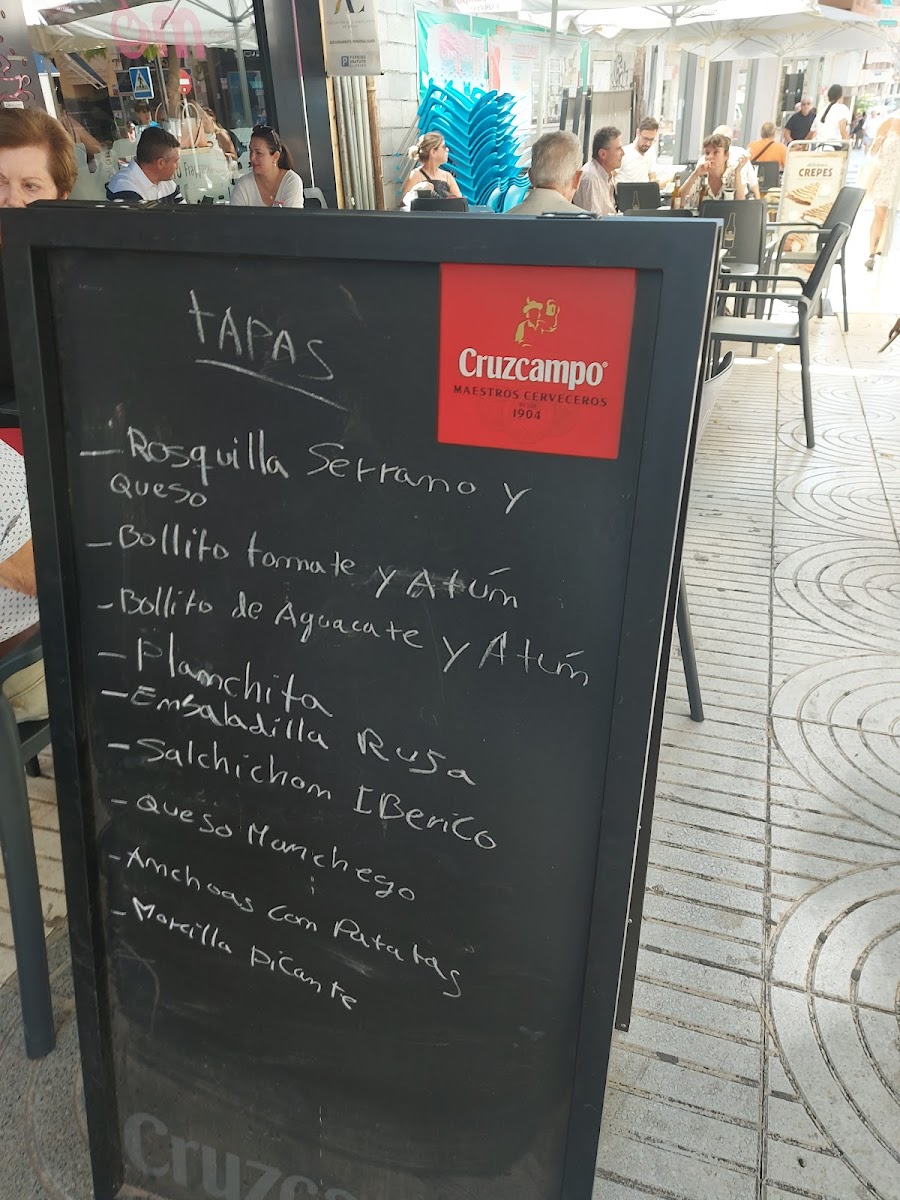 CREPES
tAPAS
Cruzcampo
MAESTROS CERVECEROS
DESDE
1904
- Rosquilla Serrano y
Queso
- Bollito tomate y Atúm
- Bollito de Aguacate y Atúm
- Plamchita
- Emsaladilla Rusa
- Salchichom IBerico
- Queso Manchego
- Amchoas com Patatas
- Morcilla picante
Cruzca